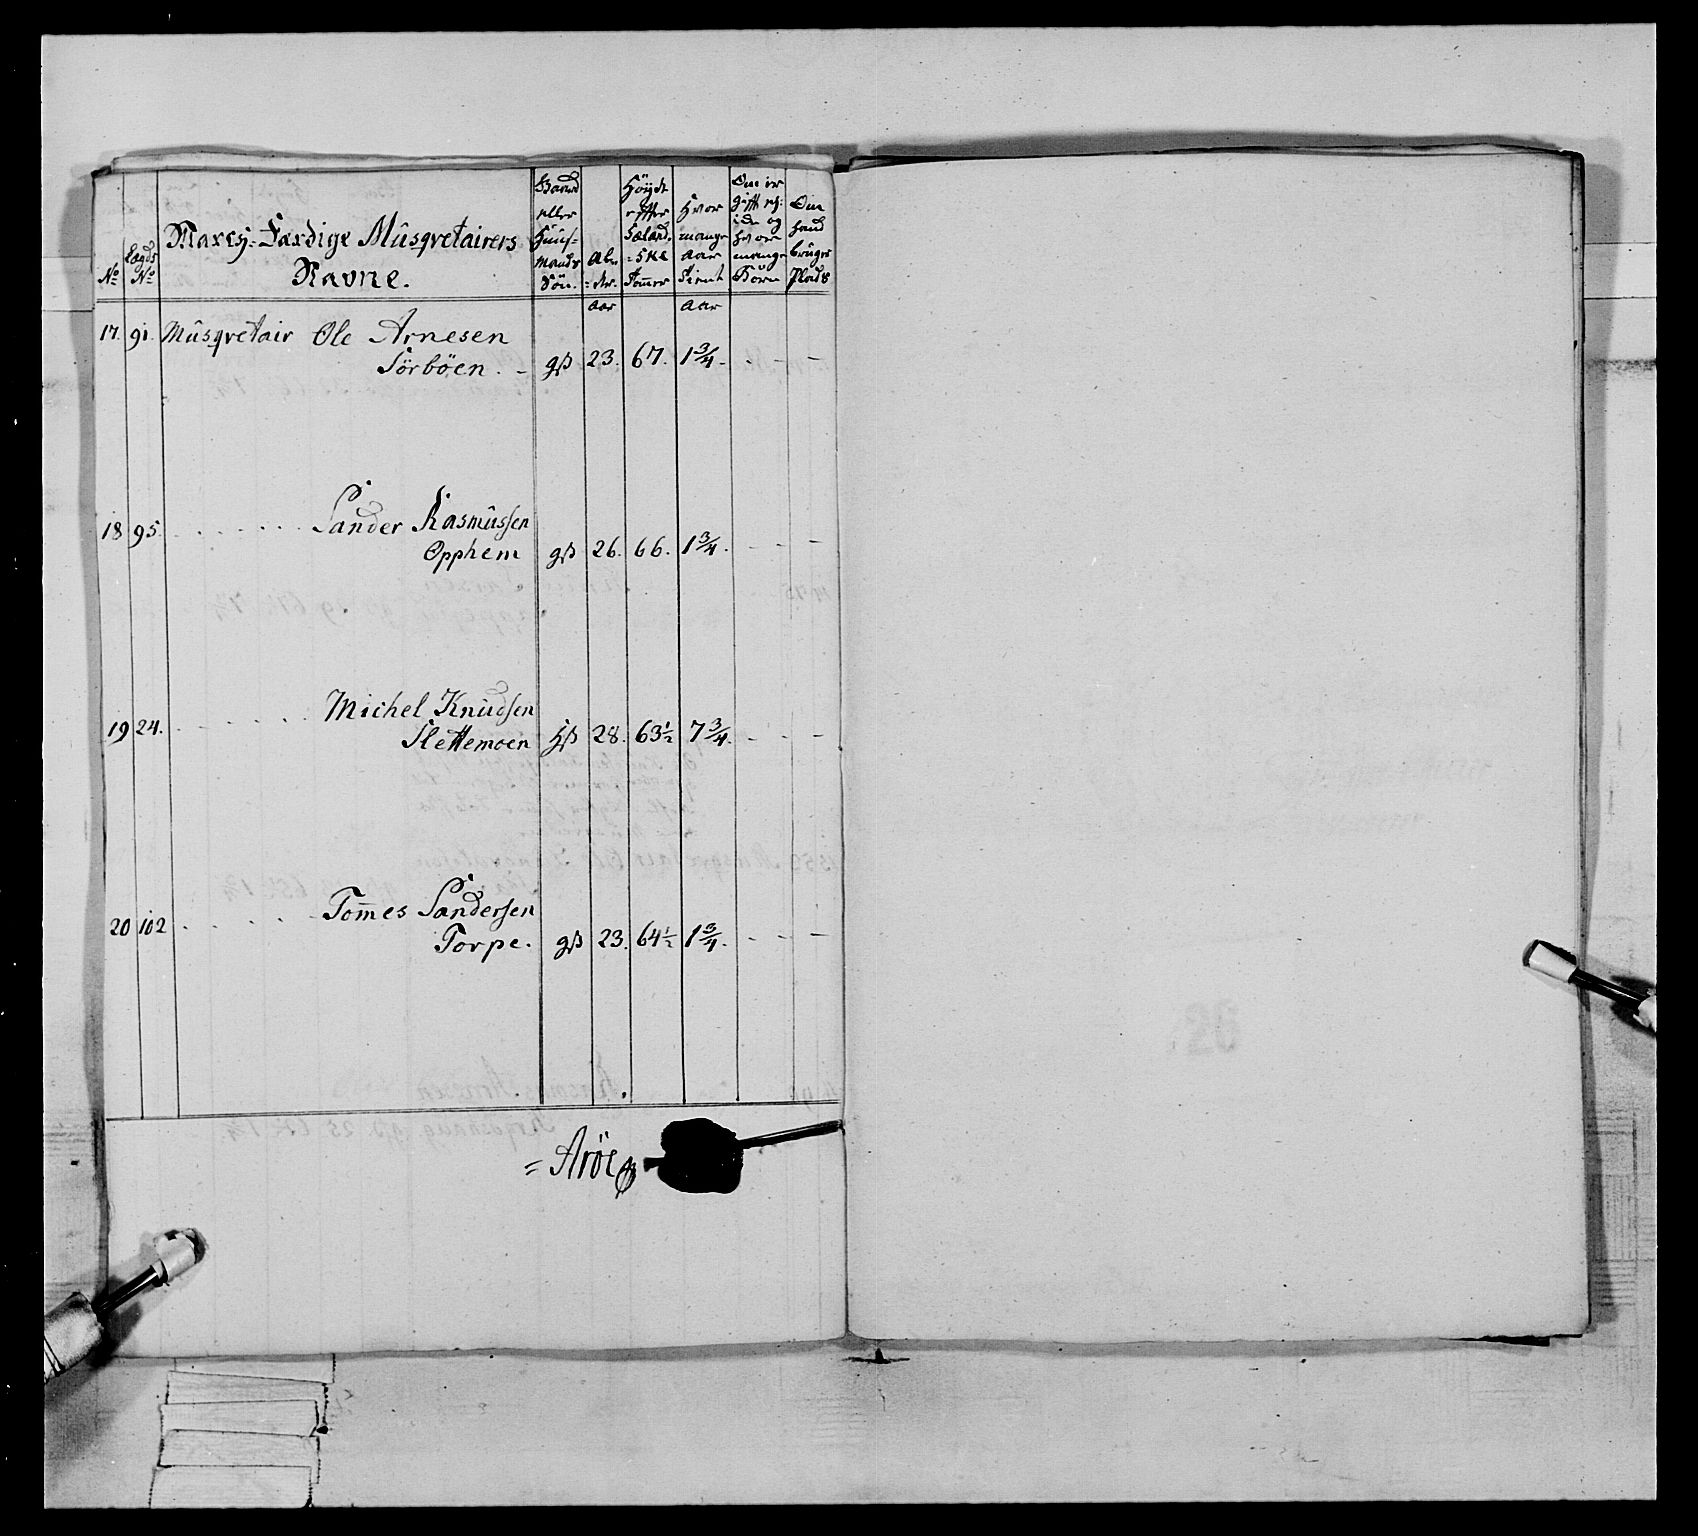 No
Lægds No
Marcsj-Færdige Mûsqvetairers
Navne.
Gaard eller Huus-Mands Sön.
Al-der.
Höyde effter Sælandske Tom̄er
Hvor mange aar tient
Om er gifft og hvor mange Born
Om hand bruger Plads
Aar
Aar
17. 91. Mûsqvetair Ole Arnesen
Sörböen. - gß 23. 67. 1¾. - - -
18 95. Sander Rasmûssen
Opphem gß 26. 66. 1¾. - - -
19 24. Michel Knûdsen
Slettemoen Hß 28. 63½ 7¾. - - -
20 102 Tom̄es Sandersen
Torpe. gß 23. 64½ 1¾. - - -
= Aröe